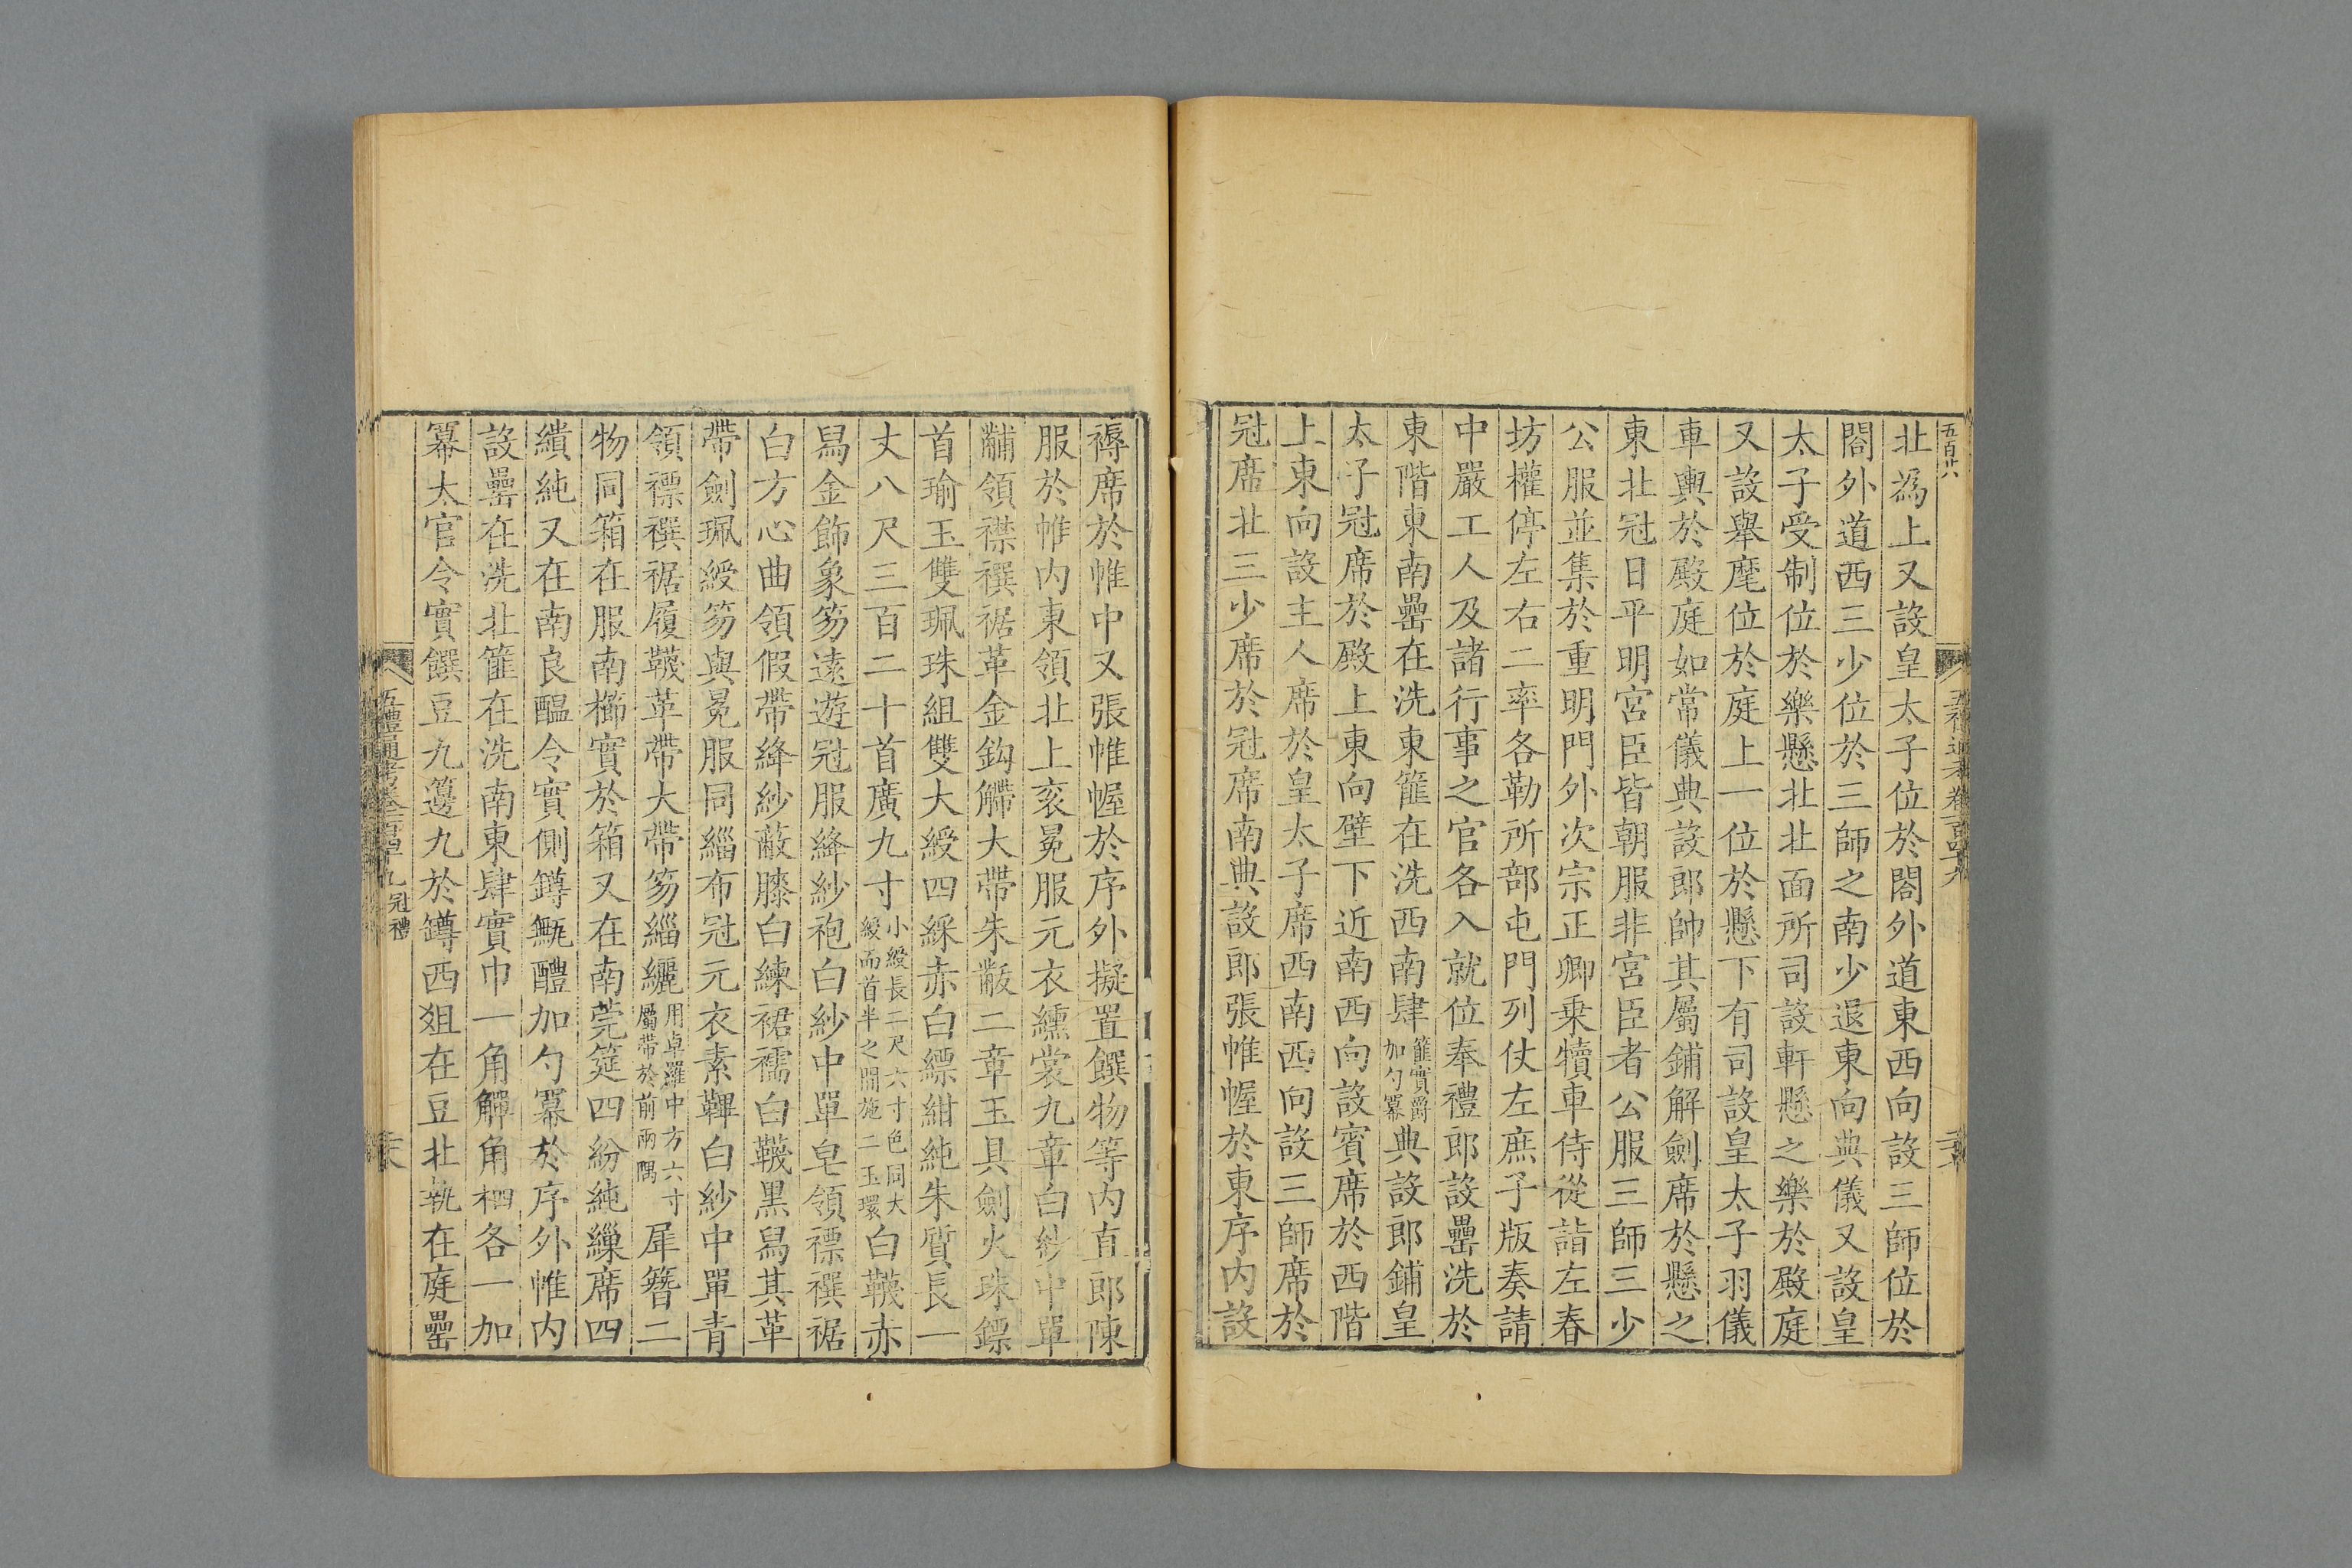 五百廿八
北爲上又設皇太子位於閤外道東西向設三師位於
閤外道西三少位於三師之南少退東向典儀又設皇
太子受制位於樂懸北北面所司設軒懸之樂於殿庭
又設舉麾位於庭上一位於懸下有司設皇太子羽儀
車輿於殿庭如常儀典設郎帥其屬鋪解劍席於懸之
東北冠日平明宮臣皆朝服非宮臣者公服三師三少
公服並集於重明門外次宗正卿乗犢車侍從詣左春
坊權停左右二率各勒所部屯門列仗左庶子版奏請
中嚴工人及諸行事之官各入就位奉禮郎設罍洗於
東階東南罍在洗東篚在洗西南肆篚實爵加勺冪典設郎鋪皇
太子冠席於殿上東向壁下近南西向設賓席於西階
上東向設主人席於皇太子席西南西向設三師席於
冠席北三少席於冠席南典設郎張帷幄於東序内設
褥席於帷中又張帷幄於序外擬置饌物等内直郎陳
服於帷内東領北上衮冕服元衣纁裳九章白紗中單
黼領襟襈裾革金鈎䚢大帶朱黻二章玉具劍火珠鏢
首瑜玉雙珮珠組雙大綬四綵赤白縹紺純朱質長一
丈八尺三百二十首廣九寸小綬長二尺六寸色同大綬而首半之間施二玉環白韈赤
舄金飾象笏遠遊冠服絳紗袍白紗中單皂領褾襈裾
白方心曲領假帶絳紗蔽膝白練裙襦白韈黒舄其革
帶劍珮綬笏與冕服同緇布冠元衣素鞸白紗中單青
領褾襈裾履韈革帶大帶笏緇纚用皁羅中方六寸屬帶於前兩隅犀簪二
物同箱在服南櫛實於箱又在南莞筵四紛純繅席四
繢純又在南良醞令實側鐏甒醴加勺冪於序外帷内
設罍在洗北篚在洗南東肆實巾一角觶角柶各一加
冪太官令實饌豆九籩九於鐏西俎在豆北執在庭罍
五禮通考卷一百四十九 冠禮